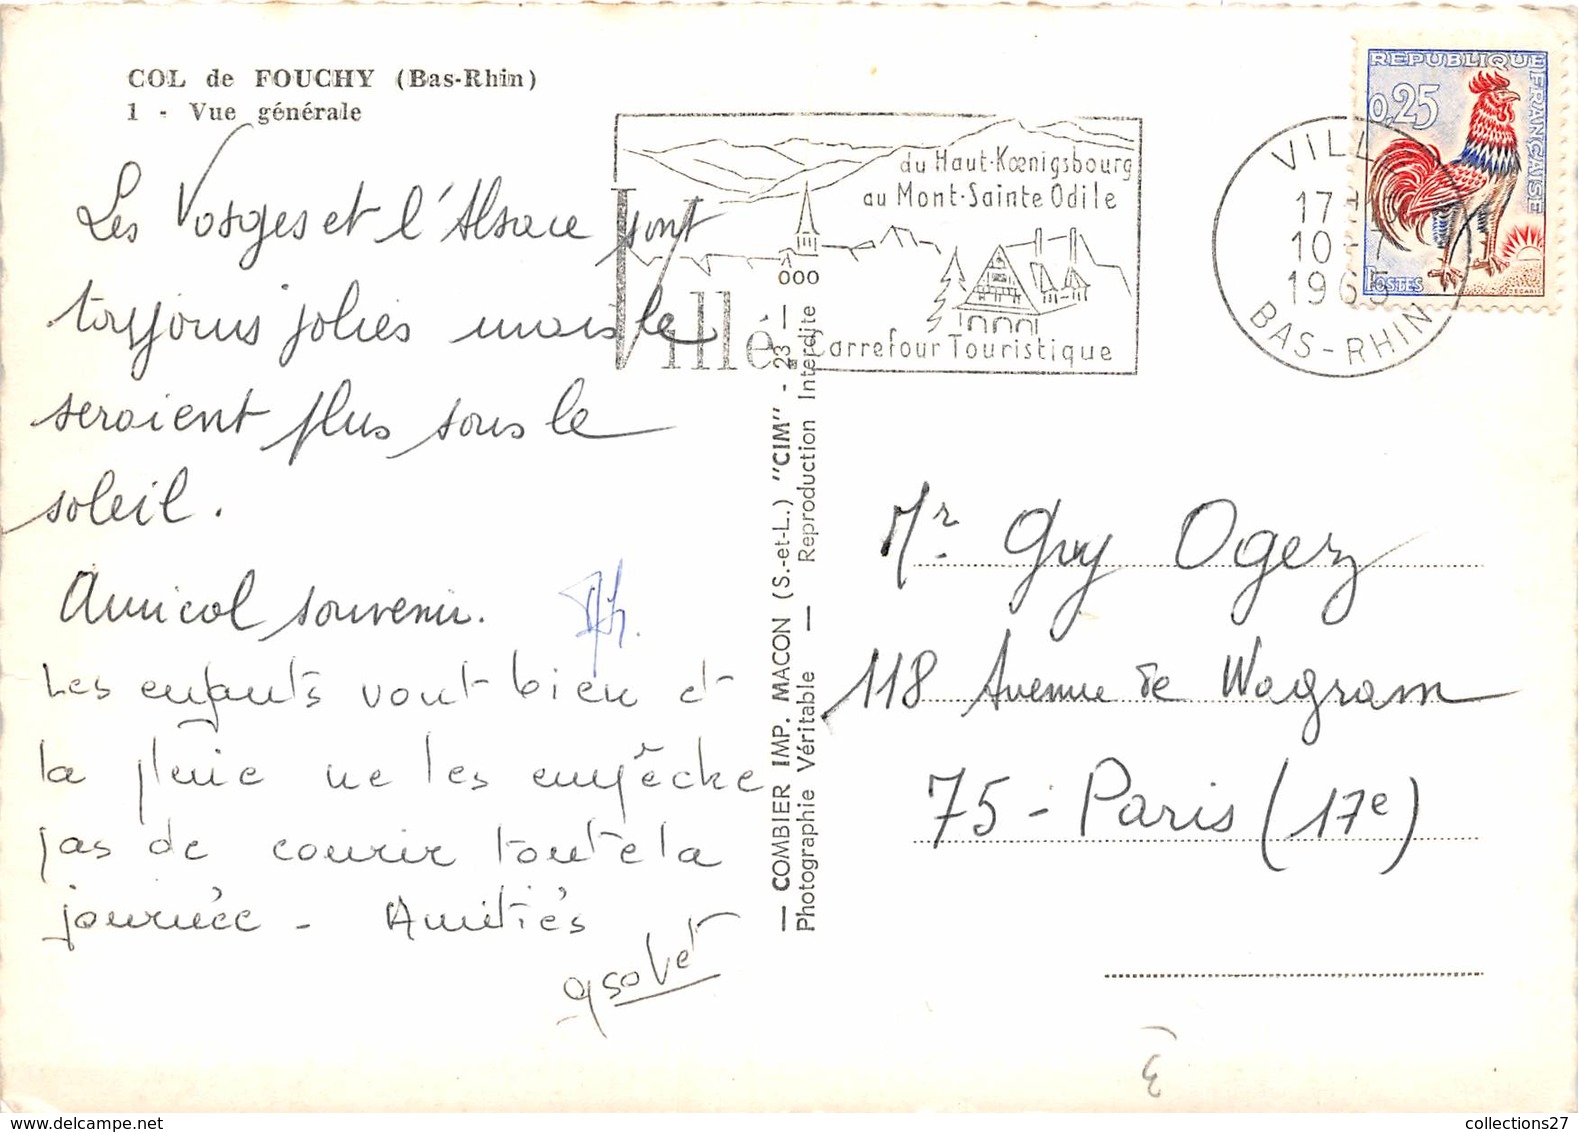 COL de FOUCHY (Bas-Rhin)
1 - Vue générale
Les Vosges et l'Alsace sont
toujours jolies mais le
seraient plus sous le
soleil.
Amical souvenir.
Les enfants vont bien et
la pluie ne les empêche
pas de courir toute la
journée - Amitiés
du Haut-Kœnigsbourg
au Mont-Sainte Odile
Villé
Carrefour Touristique
VILLÉ
17 H
10-7
1965
BAS-RHIN
REPUBLIQUE FRANÇAISE
0,25
POSTES
DECARIS
— COMBIER IMP. MACON (S.-et-L.) "CIM" - 23 —
Photographie Véritable — Reproduction Interdite
Mr Guy Ogez
118 Avenue de Wagram
75 - Paris (17e)
collections27